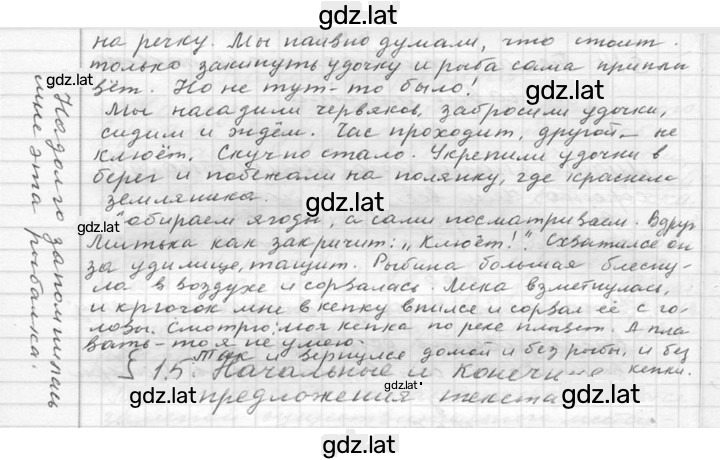 gdz.lat
на речку. Мы наивно думали, что стоит
только закинуть удочку и рыба сама приплы
gdz.lat
вёт. Но не тут-то было!
gdz.lat
Мы насадили червяков, забросили удочки,
сидим и ждём. Час проходит, другой – не
клюёт. Скучно стало. Укрепили удочки в
берег и побежали на полянку, где краснела
земляника.
gdz.lat
обираем ягоды, а сами посматриваем. Вдруг
gdz.lat
Митька как закричит: „Клюёт!". Схватился он
за удилище, тащит. Рыбина большая блесну-
ла в воздухе и сорвалась. Леска взметнулась,
и крючок мне в кепку впился и сорвал её с го-
ловы. Смотрю: моя кепка по реке плывет. А пла
вать-то я не умею.
Так и вернулся домой и без рыбы, и без
кепки.
§ 15. Начальные и конечные
gdz.lat
предложения текста
gdz.lat
gdz.lat
gdz.lat
Надолго запомнилась
мне эта рыбалка.